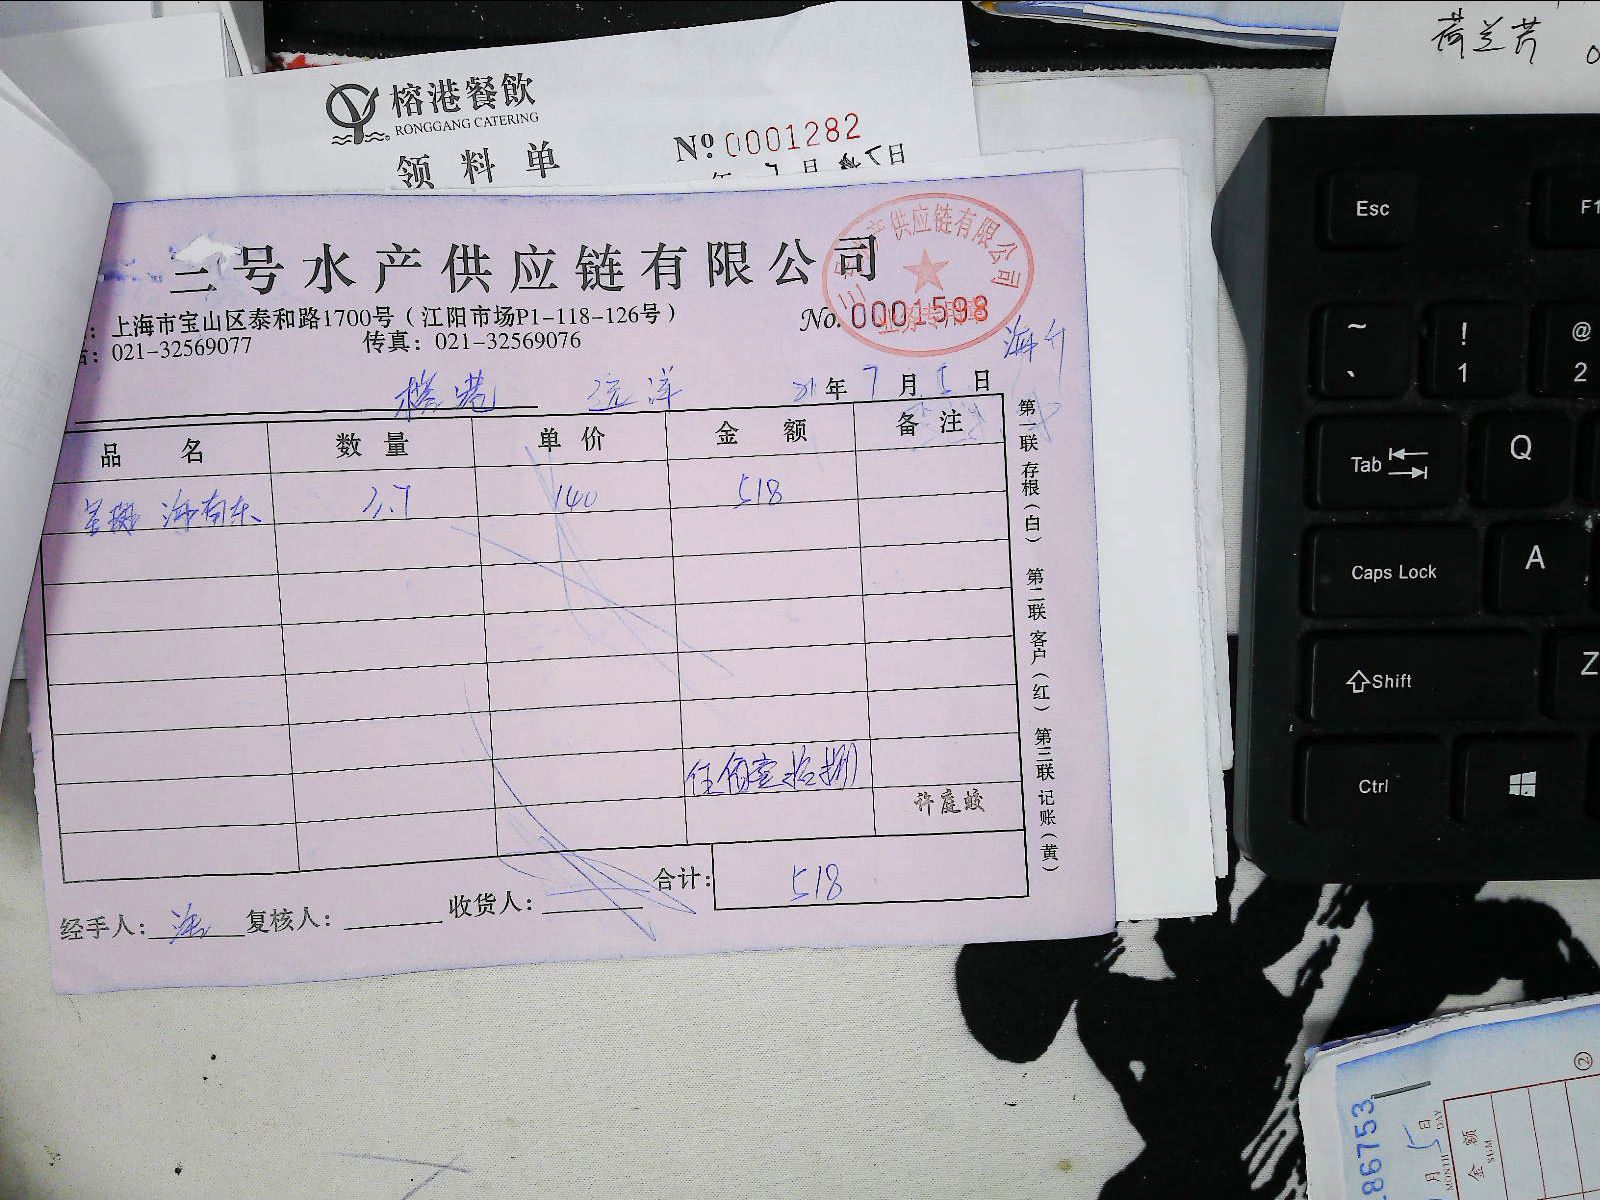 荷兰芹
榕港餐飲
RONGGANG CATERING
领料单
Nº 0001282
7月 日
三号水产供应链有限公司
产供应链有限公司
上海市宝山区泰和路1700号（江阳市场P1-118-126号）
No. 0001598
021-32569077 传真：021-32569076
榕港 远洋 21年7月5日
品名 数量 单价 金额 备注
3.7 140 518
伍佰壹拾捌
许庭蛟
合计: 518
经手人: 复核人: 收货人:
第一联 存根（白） 第二联 客户（红） 第三联 记账（黄）
Esc F1
~ ` ! 1 @ 2
Tab Q
Caps Lock A
Shift Z
Ctrl
86753
月 5日
MONTH DAY
金额
SUM
②